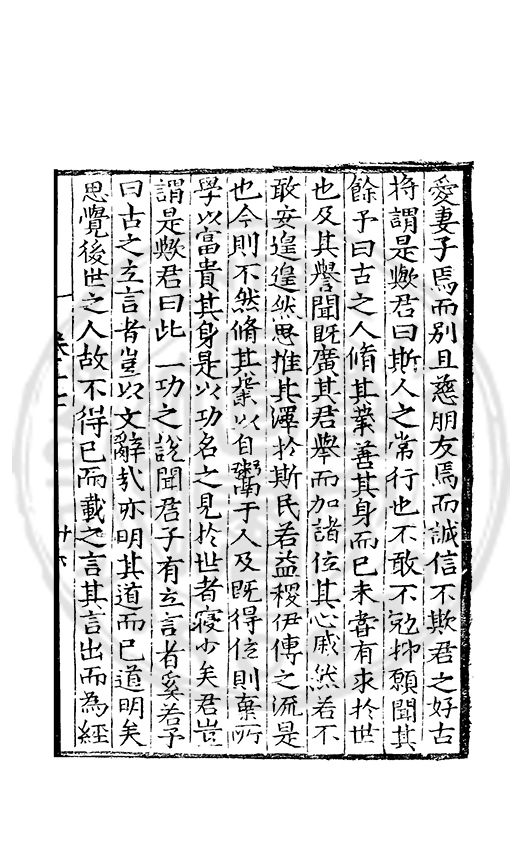 愛妻子焉而別且慈朋友焉而誠信不欺君之好古
將謂是歟君曰斯人之常行也不敢不勉抑願聞其
餘予曰古之人脩其業善其身而已未嘗有求於世
也及其譽聞既廣其君舉而加諸位其心戚然若不
敢安遑遑然思推其澤於斯民若益稷伊傅之流是
也今則不然脩其業以自鬻于人及既得位則棄所
學以富貴其身是以功名之見於世者寝少矣君豈
謂是歟君曰此一功之說聞君子有立言者奚若予
曰古之立言者豈以文辭哉亦明其道而已道明矣
思覺後世之人故不得已而載之言其言出而為經
廿六